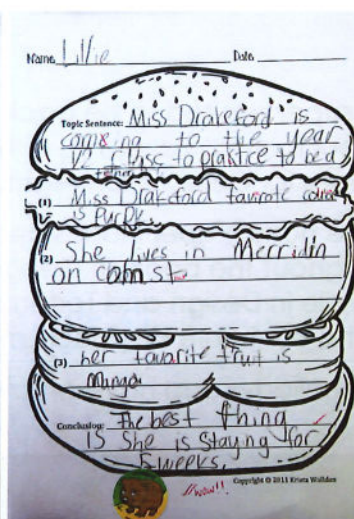 Name Lillie Date
Topic Sentence: Miss Drakeford is
coming to the year
1/2 class to praktice to be a
(1) Miss Drakeford favorate colour
is Purple.
(2) She lives in Merridin
on st
(3) her favarite fruit is
Mango.
Conclusion: the best thing
is She is staying for
5 weeks.
Copyright © 2011 Krista Wallden
//wow!!